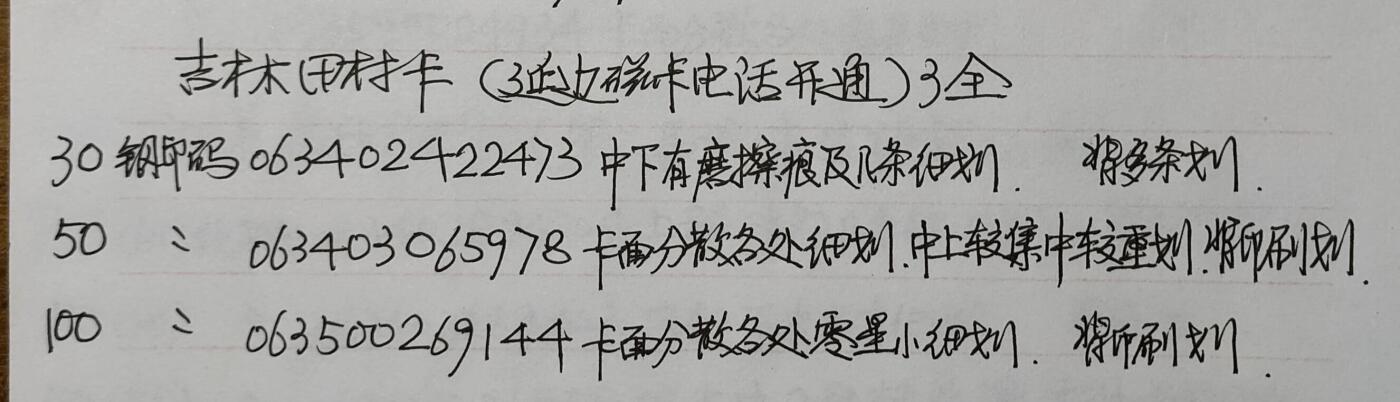 吉林田村卡（延边磁卡电话开通）3全
30 钢印码 063402422473 中下有磨擦痕及几条细划. 背多条划.
50 〃 063403065978 卡面分散各处细划.中上较集中较重划.背印刷划.
100 〃 063500269144 卡面分散各处零星小细划. 背印刷划.